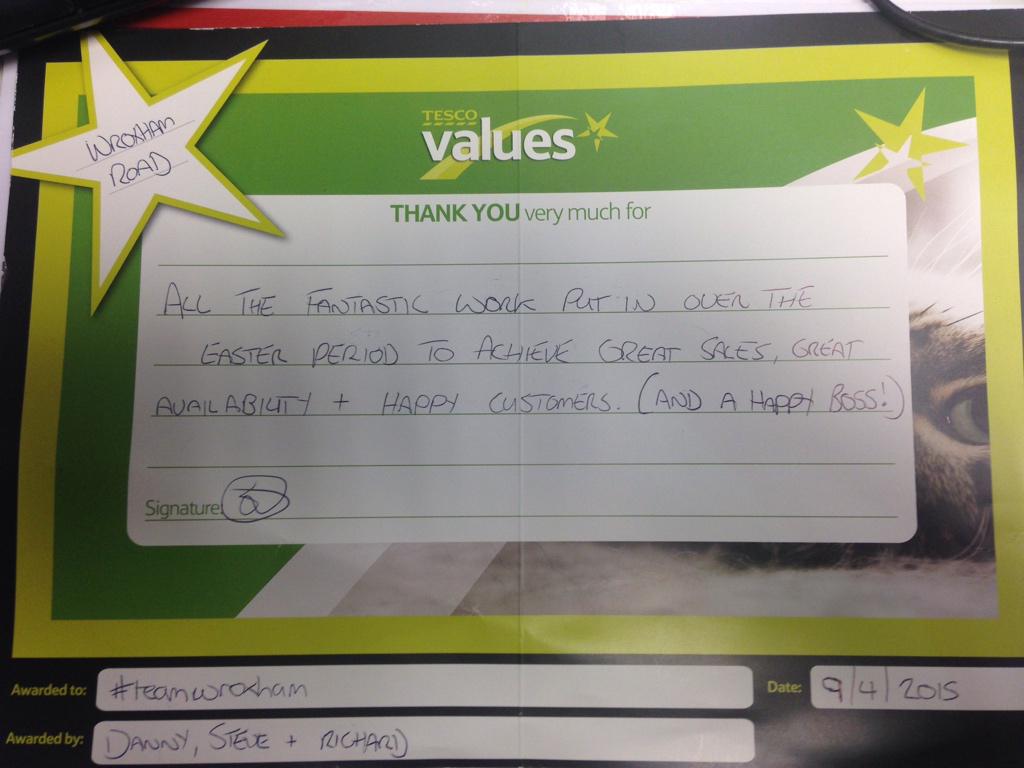 WROXHAM
ROAD
TESCO
values
THANK YOU very much for
ALL THE FANTASTIC WORK PUT IN OVER THE
EASTER PERIOD TO ACHIEVE GREAT SALES, GREAT
AVAILABILITY + HAPPY CUSTOMERS. (AND A HAPPY BOSS!)
Signature:
Awarded to: #teamwroxham
Date: 9/4/2015
Awarded by: DANNY, STEVE + RICHARD